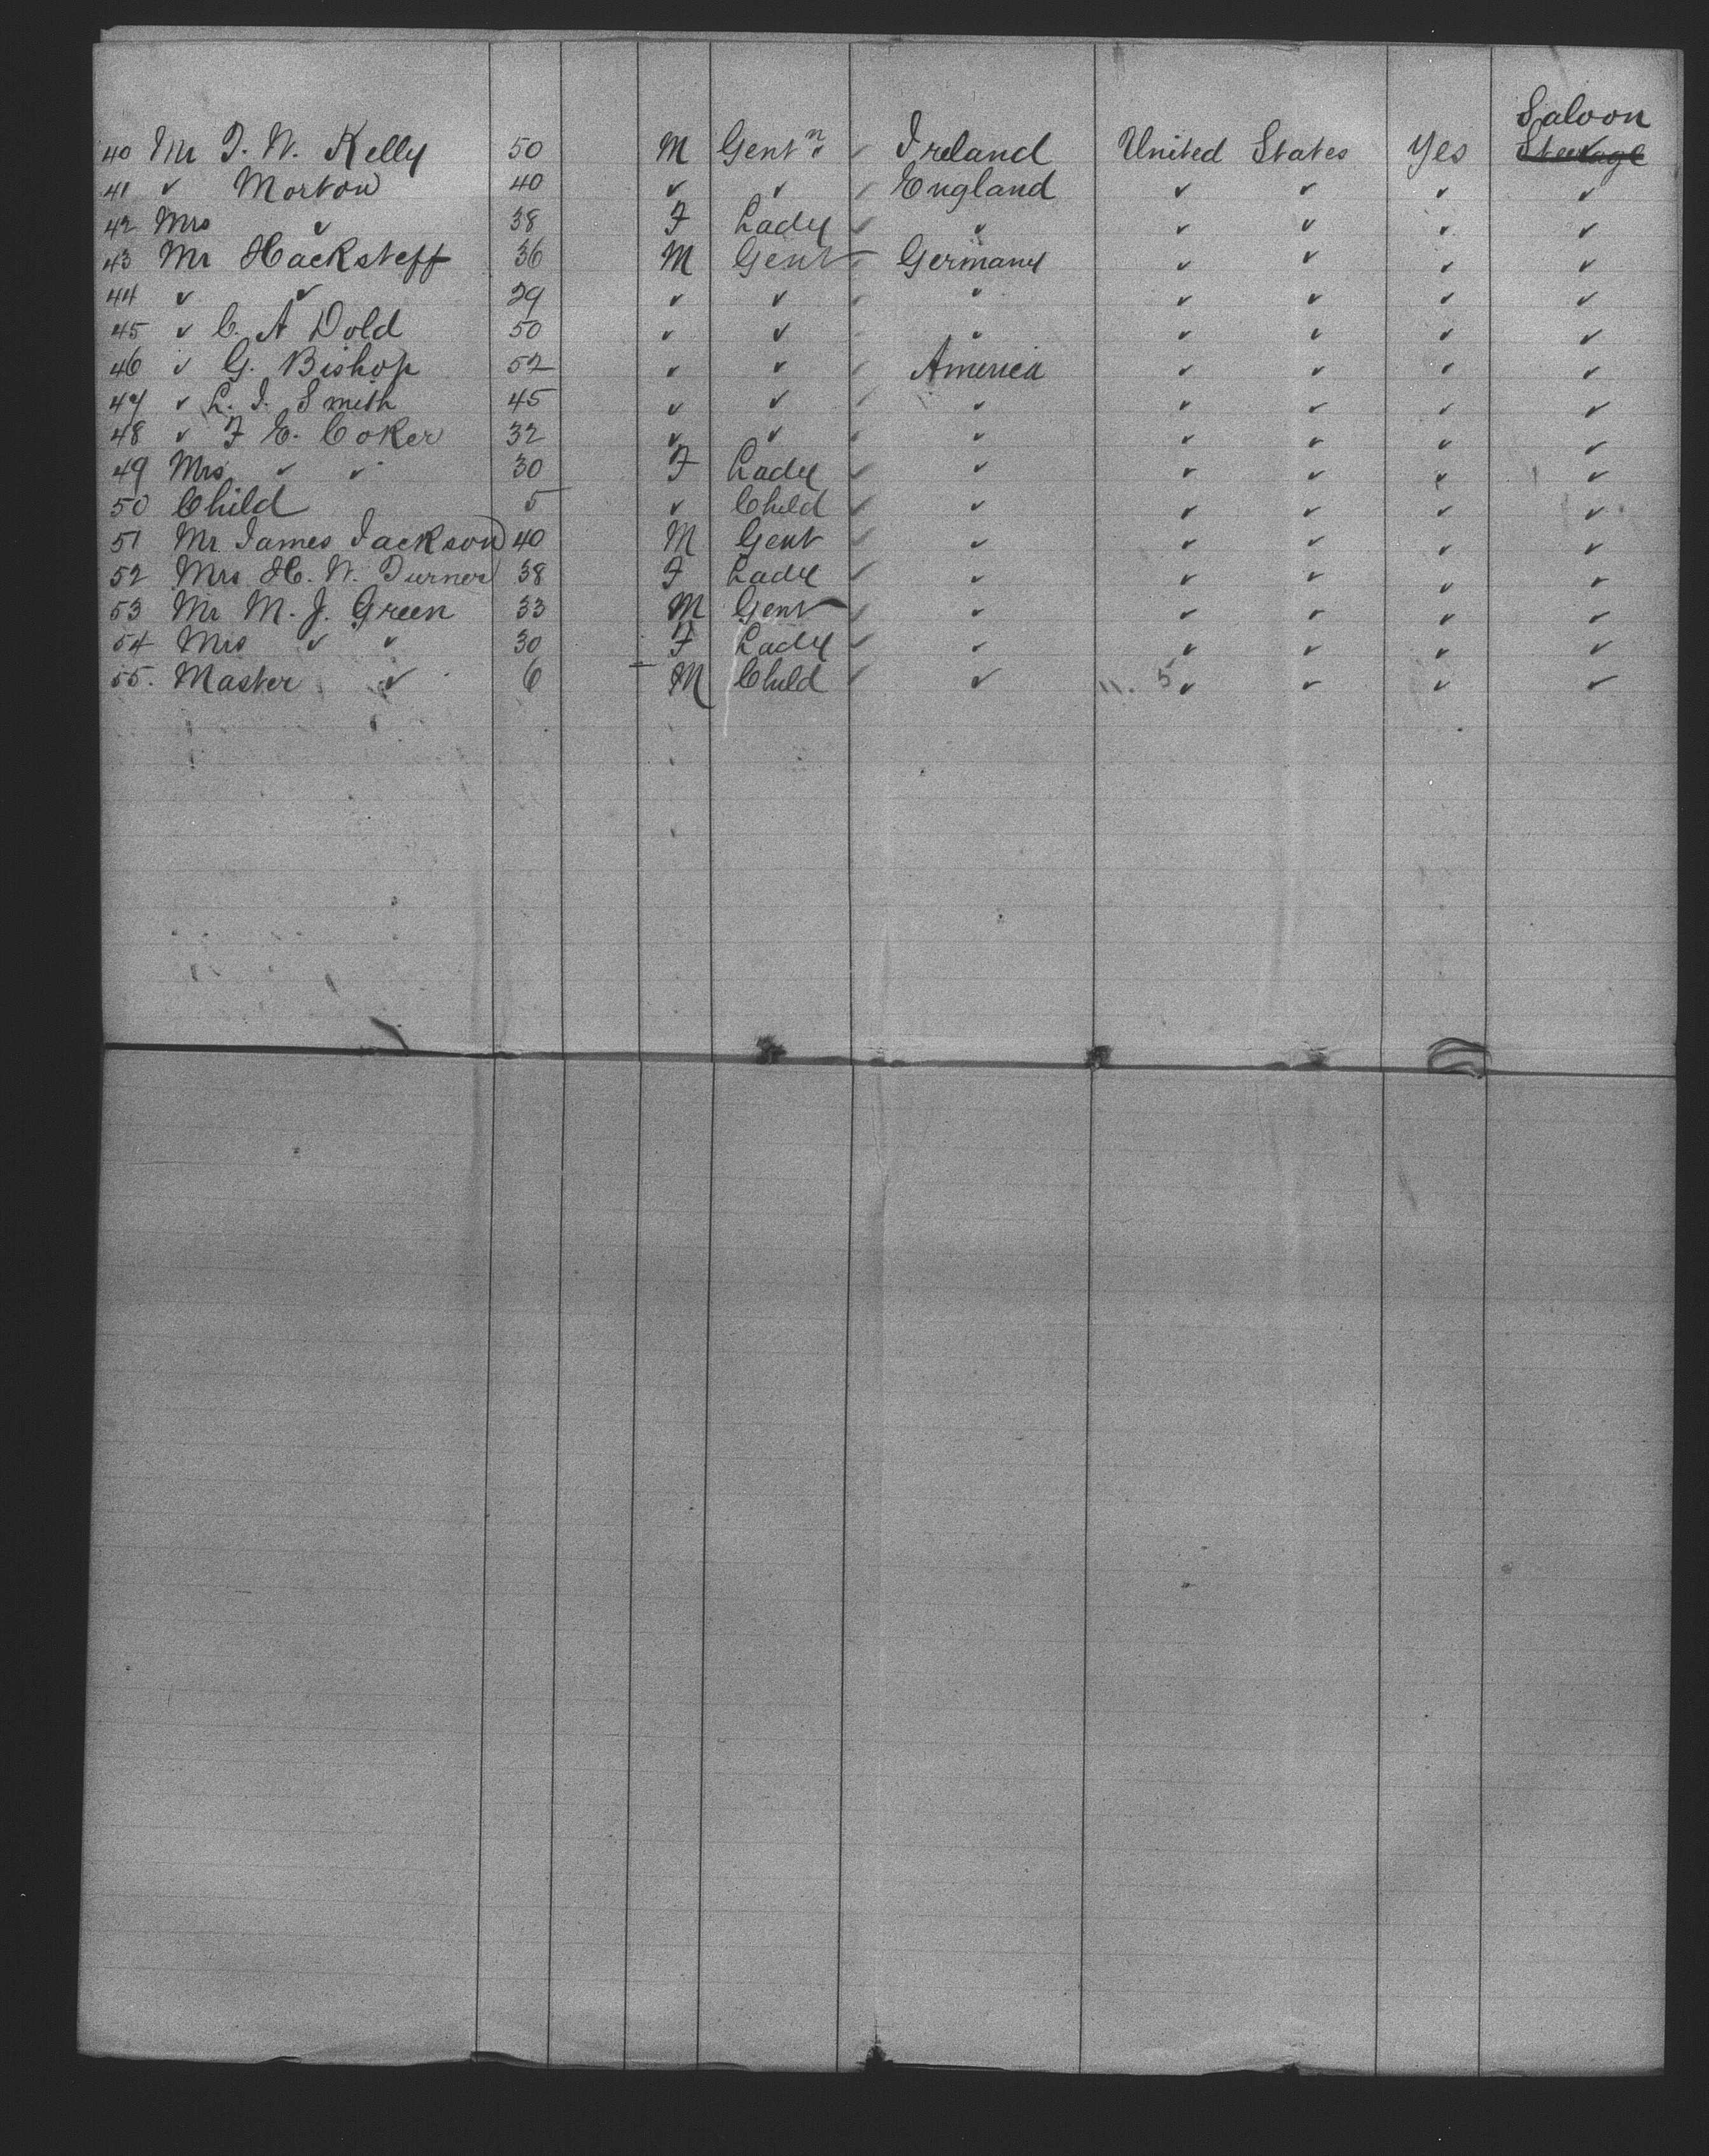 Saloon
40 Mr T. W. Kelly 50 M Gentn ✓ Ireland United States Yes Steerage
41 ✓ Morton 40 ✓ ✓ ✓ England ✓ ✓ ✓ ✓
42 Mrs ✓ 38 F Lady ✓ ✓ ✓ ✓ ✓ ✓
43 Mr Hacksteff 36 M Gent Germany ✓ ✓ ✓ ✓
44 ✓ ✓ 29 ✓ ✓ ✓ ✓ ✓ ✓ ✓ ✓
45 ✓ C. A Dold 50 ✓ ✓ ✓ ✓ ✓ ✓ ✓
46 ✓ G. Bishop 52 ✓ ✓ ✓ America ✓ ✓ ✓ ✓
47 ✓ L. I. Smith 45 ✓ ✓ ✓ ✓ ✓ ✓ ✓ ✓
48 ✓ F E. Coker 32 ✓ ✓ ✓ ✓ ✓ ✓ ✓ ✓
49 Mrs ✓ ✓ 30 F Lady ✓ ✓ ✓ ✓ ✓ ✓
50 Child 5 ✓ Child ✓ ✓ ✓ ✓ ✓ ✓
51 Mr James Jackson 40 M Gent ✓ ✓ ✓ ✓ ✓ ✓
52 Mrs H. W. Turner 38 F Lady ✓ ✓ ✓ ✓ ✓ ✓
53 Mr M. J. Green 33 M Gent ✓ ✓ ✓ ✓ ✓ ✓
54 Mrs ✓ ✓ 30 F Lady ✓ ✓ ✓ ✓ ✓ ✓
55. Master ✓ 6 M Child ✓ ✓ ✓ ✓ ✓ ✓